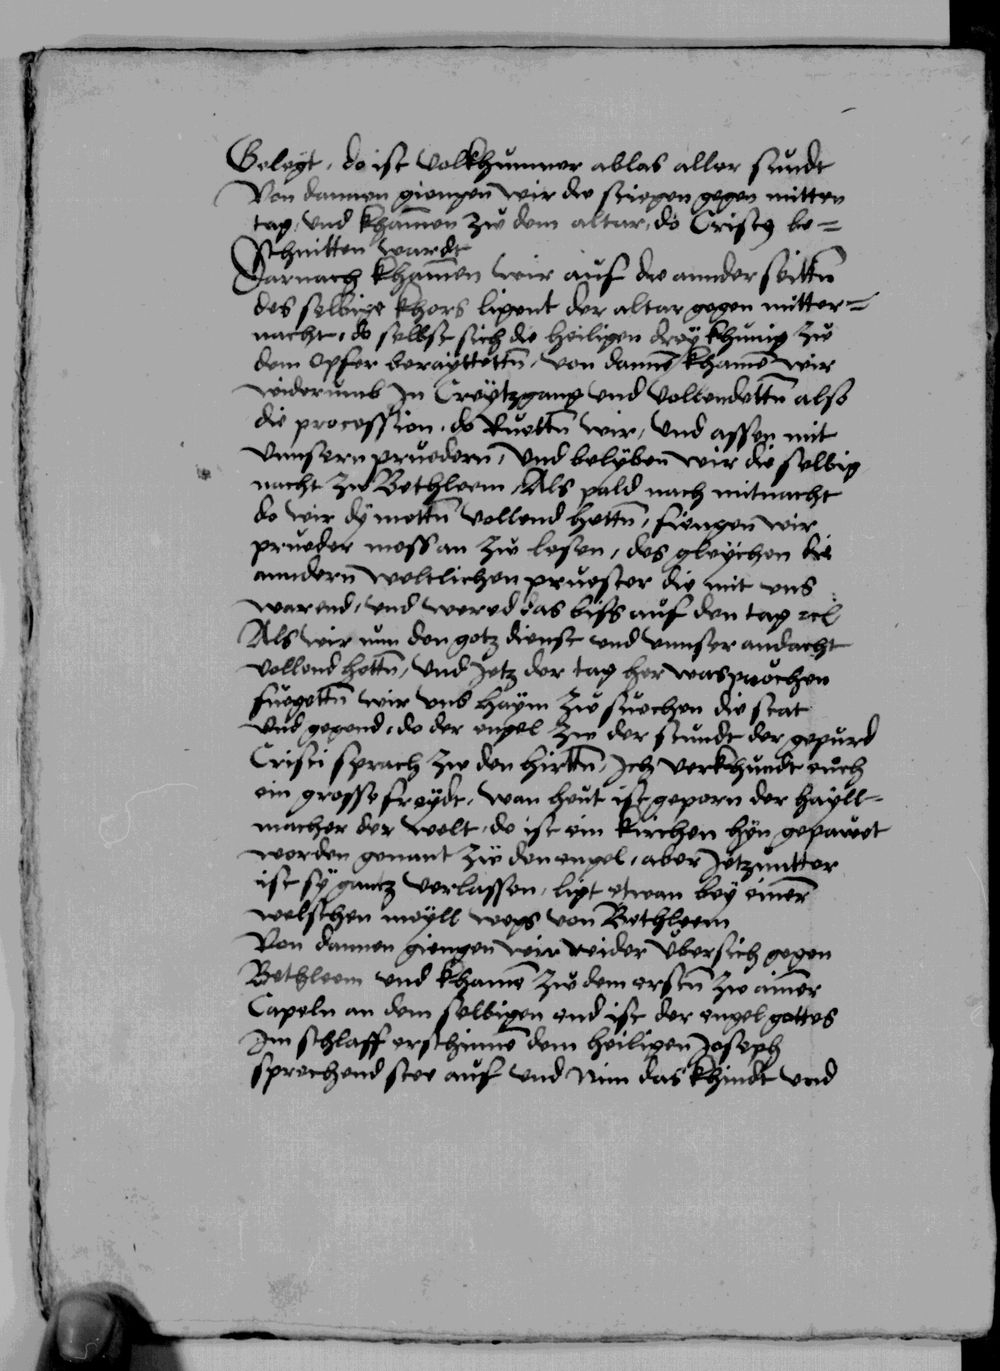 Gelegt, do ist volkhummer ablas aller sundt
Von dannen giengen wir die stiegen gegen mitten
tag, und khamen zw dem altar, do Cristus be=
schnitten wardt
Darnach khamen wir auf die annder seittn̄
des selbige khors ligent der altar gegen mitter=
nacht, do selbst sich die heiligen dreÿ khunig zu
dem opfer beraÿttettn̄, von dannē khamē wir
widerumb In Creÿtzgang und vollendettn̄ also
die procession, do ruettn̄ wir, und assen mit
unnsern pruedern, und belÿben wir die selbig
nacht zw Bethleem, Als pald nach mitnacht
do wir dÿ mettn̄ vollend hettn̄, fiengen wir
prueder mess an zw lesen, des gleÿchen die
anndern weltlichen pruester die mit uns
warend, und wered das biss auf den tag ꝛcͣ
Als wir nun den gotz dienst und unnser andacht
vollend hettn̄, und Jetz der tag her was prochen
fuegettn̄ wir uns haÿm zu suechen die stat
und gegend, do der engel zw der stundt der gepurd
Cristi sprach zw den hirttn̄, Ich verkhundt euch
ein grosse freÿdt, wan heut ist geporn der haÿll=
macher der welt, do ist ein kirchen hÿn gepawet
worden genant zu den engel, aber Jetzuntter
ist sÿ gantz verlassen, ligt etwan beÿ einer
welschen meÿll wegs von Bethleem
Von dannen giengen wir wider ubersich gegen
Bethleem und khamē zw dem erstn̄ zw aimer
Capeln an dem selbigen end ist der engel gottes
Im schlaff erschinnē dem heiligen Joseph
sprechend stee auf und nim das khindt und